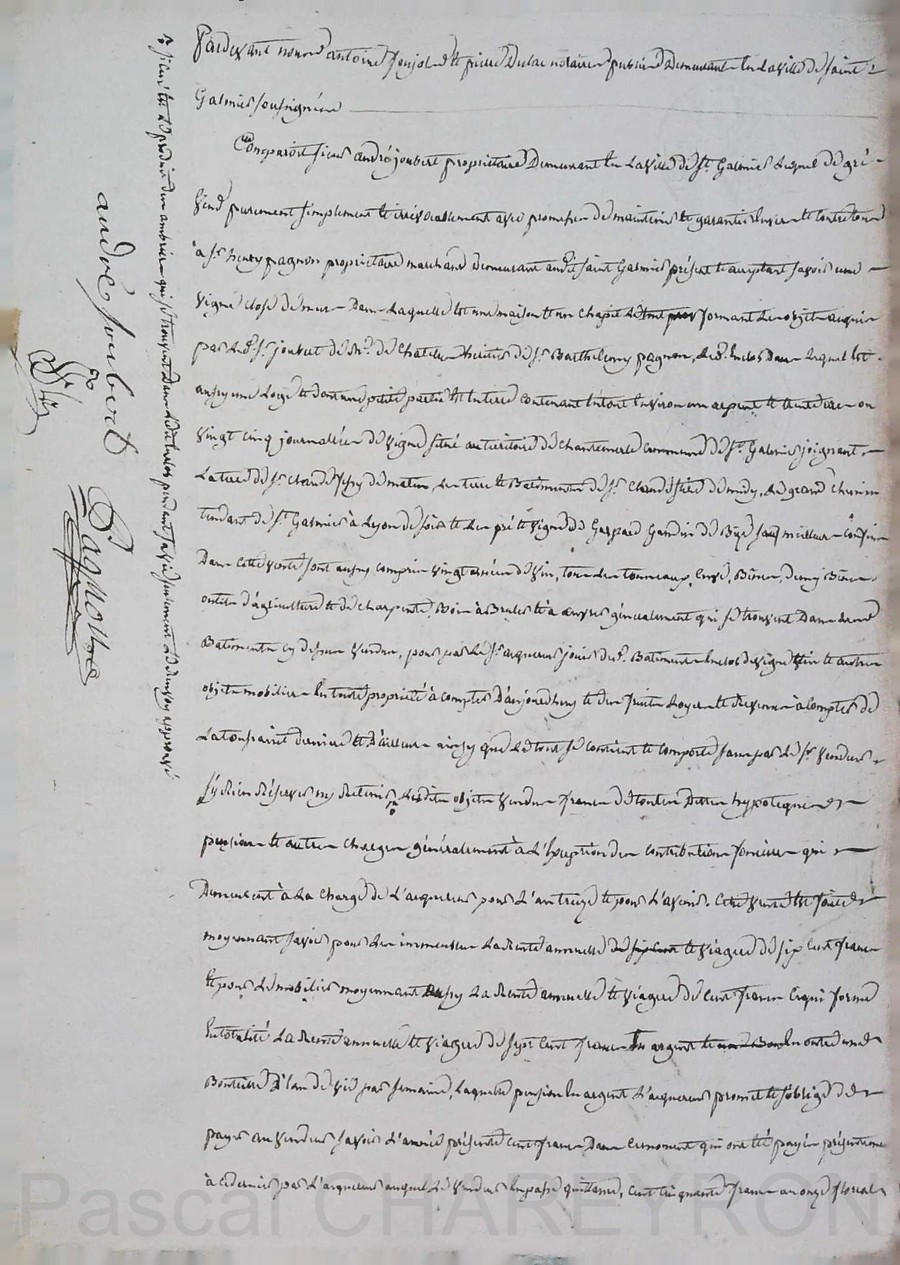 Pardevant nous antoine et pierre Dulac notaires publics Demeurant en La ville de Saint
Galmier soussignés
Comparoit sieur andré joubert propriétaire Demeurant en La ville de St. Galmier Lequel de gré
Vend purement simplement et irrévocablement avec promesse de maintenir et garantir envers et contre tous
à Sr. henry pagnon propriétaire marchand Demeurant audit saint Galmier présent et acceptant savoir une
vigne close de murs Dans Laquelle est une maison et un chapit formant Les objets acquis
par Led. Sr. joubert de Châtelus héritier de Sr. Barthelemy pagnon, Led. enclos Dans Lequel est
aussy une Loge et dont une petite partie est en terre contenant en tout environ un arpent et trente ou
vingt cinq journalées de vigne situé au territoire de chantemerle commune de St. Galmier joignant
La terre de Sr. de matin, Le terre et Batiments de Sr. de midy, Le grand chemin
tendant de St. Galmier à Lyon de soir et Les pré et vigne de Gaspard de Bize sauf meilleurs confins
Dans cette vente sont aussy compris vingt de vin, tous Les tonneaux, Cuve, Bennes, demy Bennes
outils d'agriculture et de charpente, Bois à Bruler et à œuvrer généralement qui se trouvent Dans
Batiments cy dessus vendus, pour par Le Sr. acquereur jouir desd. Batiments enclos de vigne vin et autres
objets mobiliers en toute propriété à compter D'aujourd'huy et des fruits Loyers et revenus à compter de
La toussaint dernière et D'ailleurs ainsy que Le tout se contient et comporte sans par Le Sr. vendeur
s'y rien réserver ny retenir Lesdits objets vendus francs de toutes Dettes hypoteques
pensions et autres charges généralement à L'exception des contributions foncières qui
Demeurent à La charge de L'acquereur pour L'an treize et pour L'avenir. Cette vente est faite
moyennant savoir pour Les immeubles La rente annuelle et viagere de six Cent francs
et pour Le mobilier moyennant aussy La rente annuelle et viagere de Cent francs ce qui forme
en totalité La rente annuelle et viagere de sept Cent francs en argent en outre une
Bouteille d'eau de vie par semaine, Laquelle pension en argent L'acquereur promet et s'oblige de
payer au vendeur savoir L'année présente Cent francs Dans ce moment qui ont été payés présentement
à ce dernier par L'acquereur auquel Le vendeur en passe quittance, Cent cinquante francs au onze floreal
qui se trouvent Dans pendant sa vie seulement approuvé
andré joubert
Pagnon
Pascal CHAREYRON